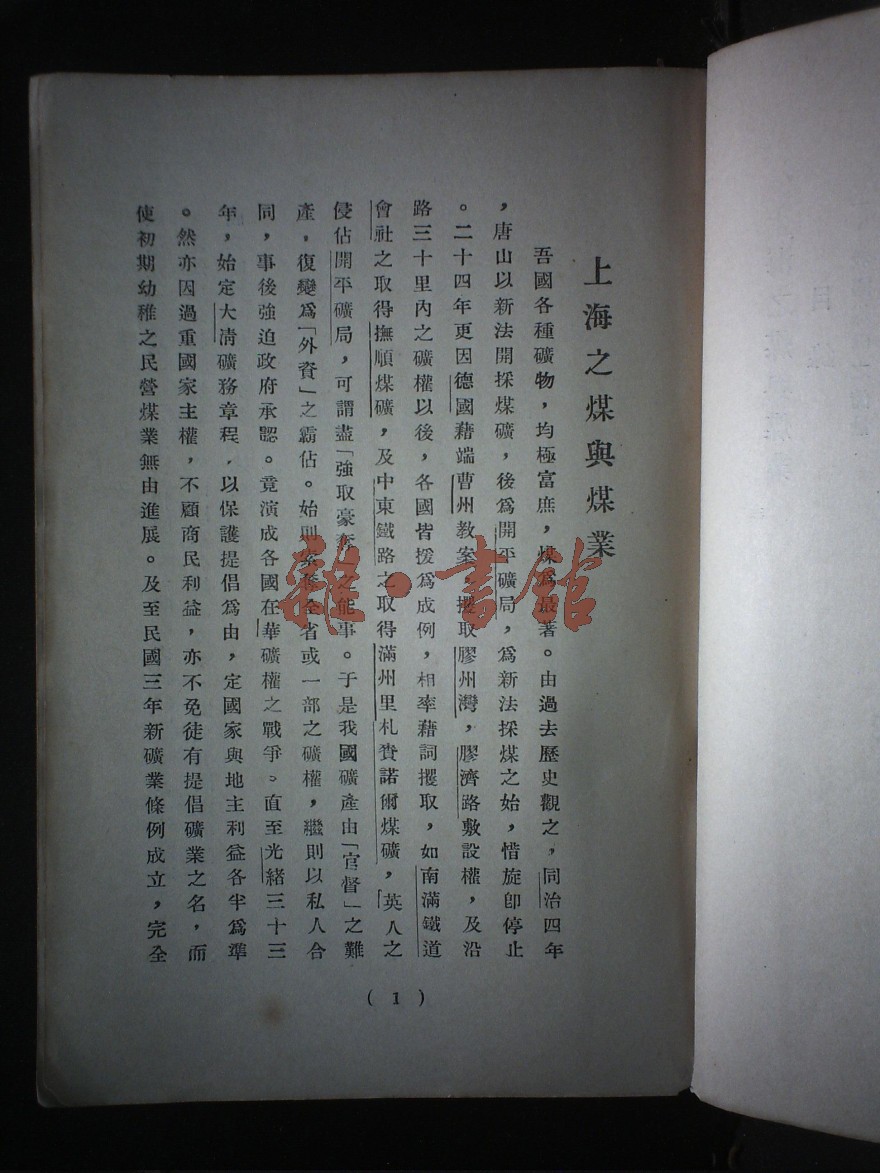 上海之煤與煤業
吾國各種礦物，均極富庶，煤爲最著。由過去歷史觀之，同治四年
，唐山以新法開採煤礦，後爲開平礦局，爲新法採煤之始，惜旋卽停止
。二十四年更因德國藉端曹州教案，攫取膠州灣，膠濟路敷設權，及沿
路三十里內之礦權以後，各國皆援爲成例，相率藉詞攫取，如南滿鐵道
會社之取得撫順煤礦，及中東鐵路之取得滿州里札賚諾爾煤礦，「英人之
侵佔開平礦局，可謂盡「強取豪奪」之能事。于是我國礦產由「官督」之難
產，復變爲「外資」之霸佔。始則索全省或一部之礦權，繼則以私人合
同，事後強迫政府承認。竟演成各國在華礦權之戰爭。直至光緒三十三
年，始定大清礦務章程，以保護提倡爲由，定國家與地主利益各半爲準
。然亦因過重國家主權，不顧商民利益，亦不免徒有提倡礦業之名，而
使初期幼稚之民營煤業無由進展。及至民國三年新礦業條例成立，完全
( 1 )
雜·書館